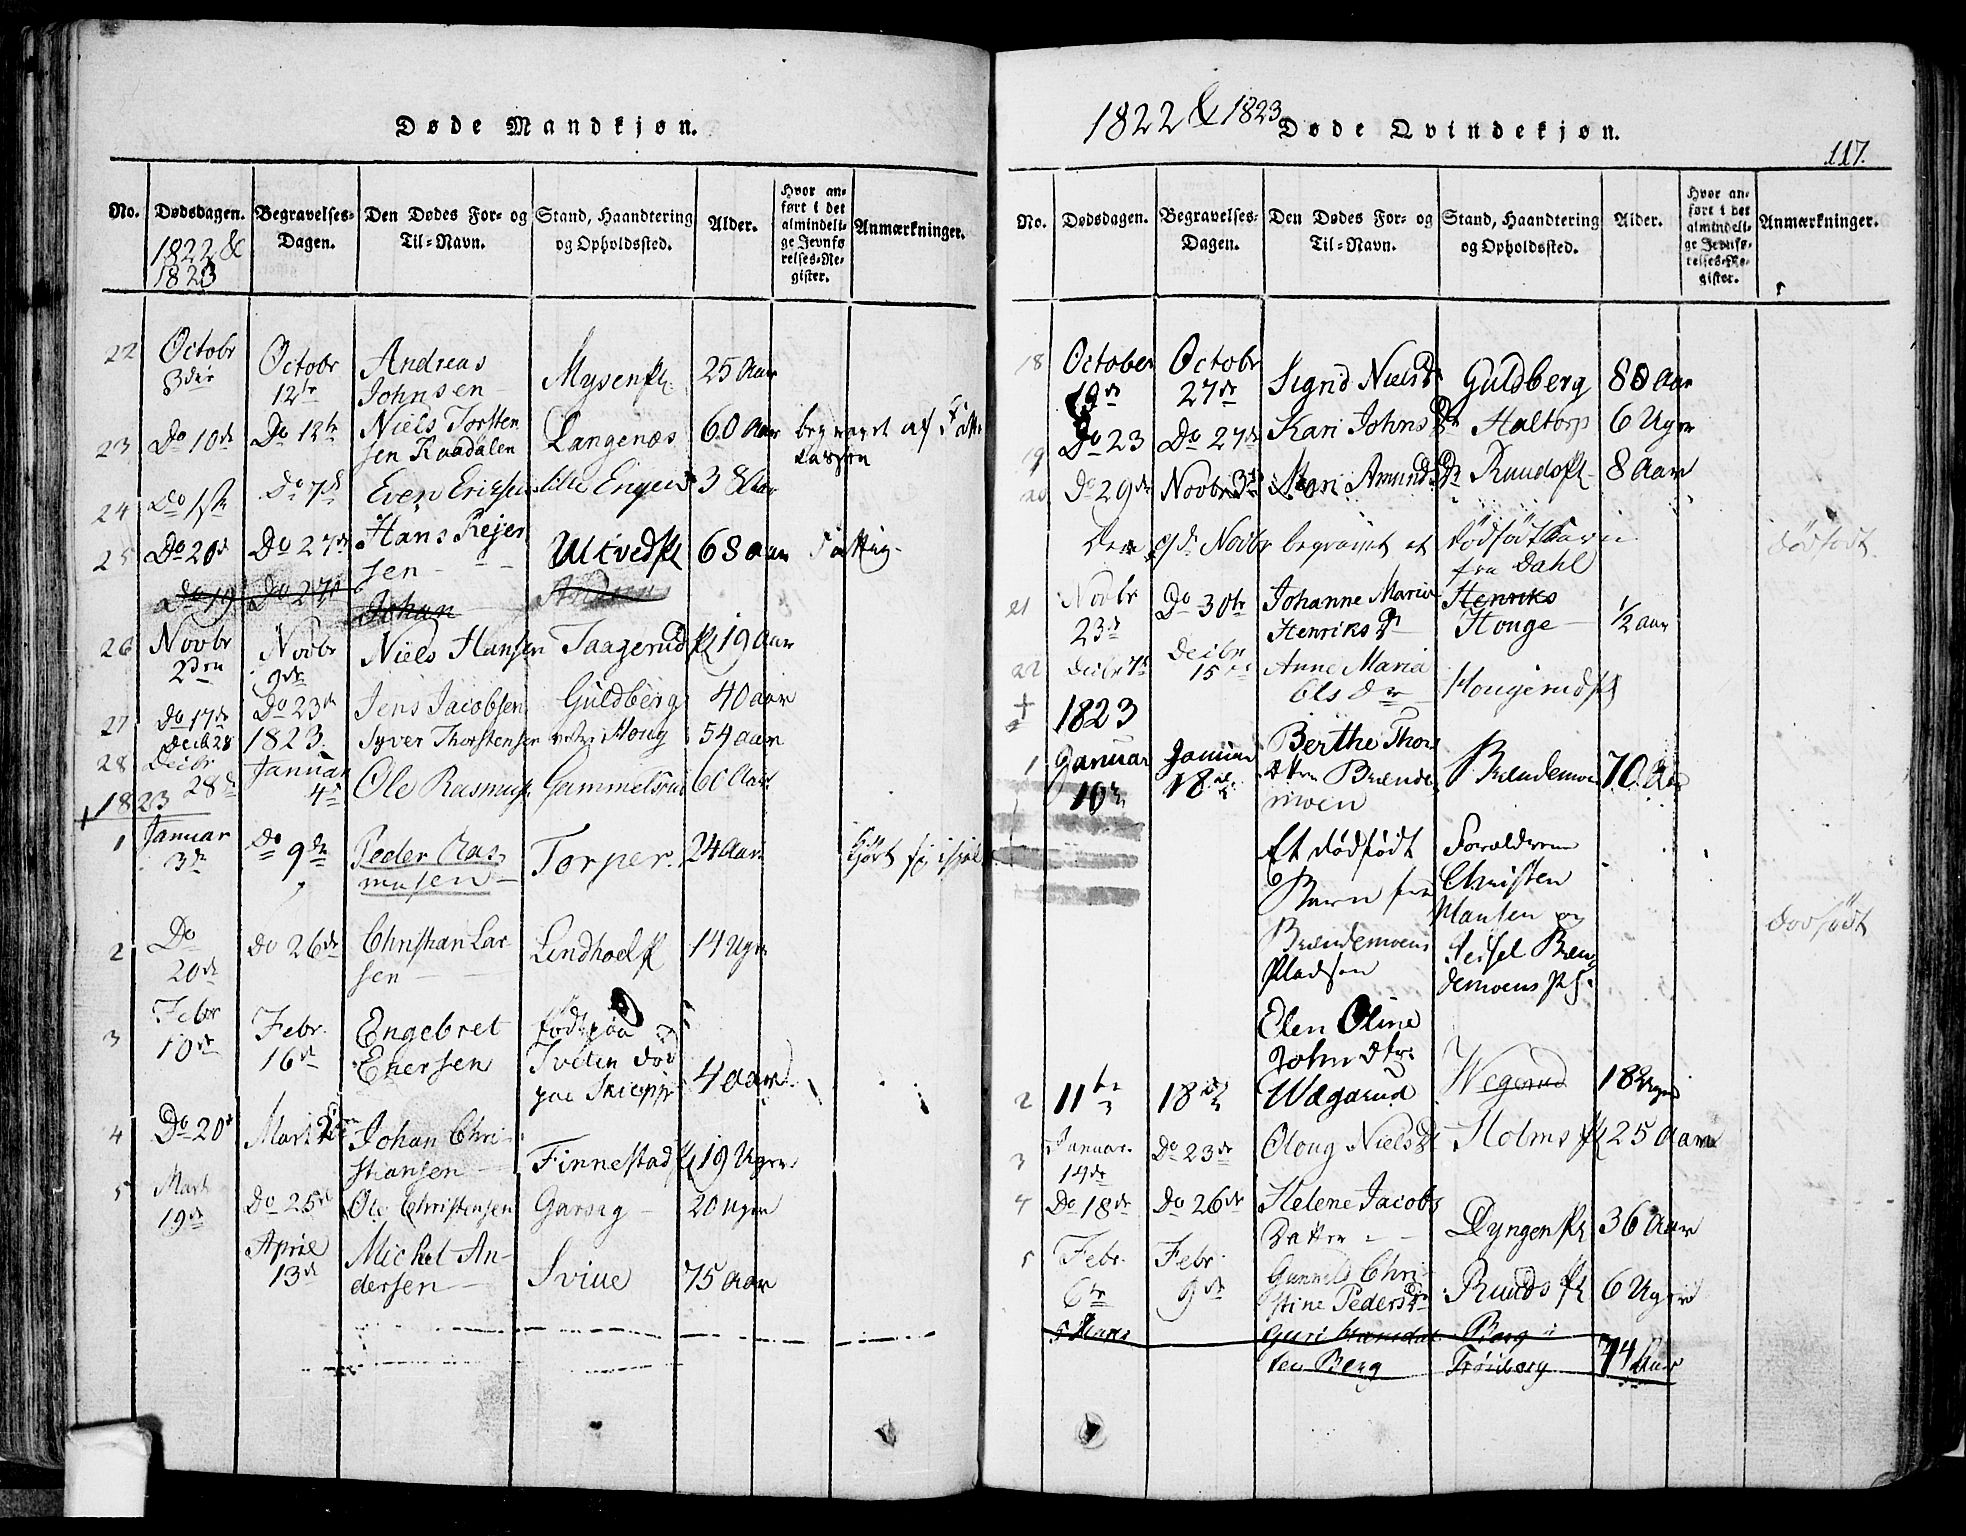 Døde Mandkjøn.
No. Dødsdagen. Begravelses-Dagen. Den Dødes For- og Til-Navn. Stand, Haandtering og Opholdssted. Alder. Hvor anført i det almindelige Jevnførelses-Register. Anmærkninger.
1822 &
1823
22 Octobr 3die Octobr 12te Andreas Johnsen Mysenpl. 25 Aar
23 Do 10de Do 12te Niels Torstensen Raadalen Langenæs 60 Aar begravet af Fattikassen
24 Do 1ste Do 7de Even Ericsen lille Engen 38 Aar
25 Do 20de Do 27de Hans Rejersen Ultvedpl 68 Aar Fattig
Do 19 Do 27de Johan
26 Novbr 2den Novbr 9de Niels Hansen Taagerudpl 19 Aar
27 Do 17de Do 23de Jens Jacobsen Guldberg 40 Aar
Decb 28 1823 Syver Thorstensen Houg 54 Aar
28 Decbr 28de Januar 4de Ole Rasmus. Gammelsrud 60 Aar
1823
1 Januar 3de Do 9de Peder Rasmusen Torper. 24 Aar
2 Do 20de Do 26de Christian Larsen Lindhoelpl 14 Uger
3 Febr 10de Febr. 16de Engebret Enersen født paa Tveten død paa Skiepp 4 Aar
4 Do 20de Marts 2den Johan Christiansen Finnestadpl 19 Uger
5 Marts 19de Do 25de Ole Christensen Garseg 20 Uger
April 13de Michel Andersen Sviue 75 Aar
1822 & 1823 Døde Qvindekjøn.
117.
No. Dødsdagen. Begravelses-Dagen. Den Dødes For- og Til-Navn. Stand, Haandtering og Opholdssted. Alder. Hvor anført i det almindelige Jevnførelses-Register. Anmærkninger.
18 October 19de Octobr 27de Signd Nielsdr Guldberg 80 Aar
19 Do 23 Do 27de Kari Johnsdr Haltorp 6 Uger
20 Do 29de Novbr 3de Kari Amundsdr Ruudspl 8 Aar
Den 9de Novbr begravet et dødfødt Barn fra Dahl dødfødt
21 Novbr 23de Do 30te Johanne Maria Henriksdr Henriks Houge ½ Aar
22 Decbr 7de Decbr 15de Anne Maria Olsdr Hougerudpl
1823
1 Januar 10de Januar 18de Berthe Thorsdtter Brændemoen Brændemoen 70 Aar
Et dødfødt Barn fra Brændemoens Pladsen Forældrene Christen Hansen og Seisel Brændemoens Pl. dødfødt
2 11te 18de Elen Oline Johndtr: Wægarud Wegerud 18 Uger
3 Januar. 14de Do 23de Oloug Nielsdr Holmspl 25 Aar
4 Do 18de Do 26de Helene Jacobs Datter Dyngenpl 36 Aar
5 Febr. 6te Febr. 9de Gunnild Christine Pedersdr Ruudspl 6 Uger
5 Marts Guri Hansdatter Berg Berg i Trøiborg 74 Aar